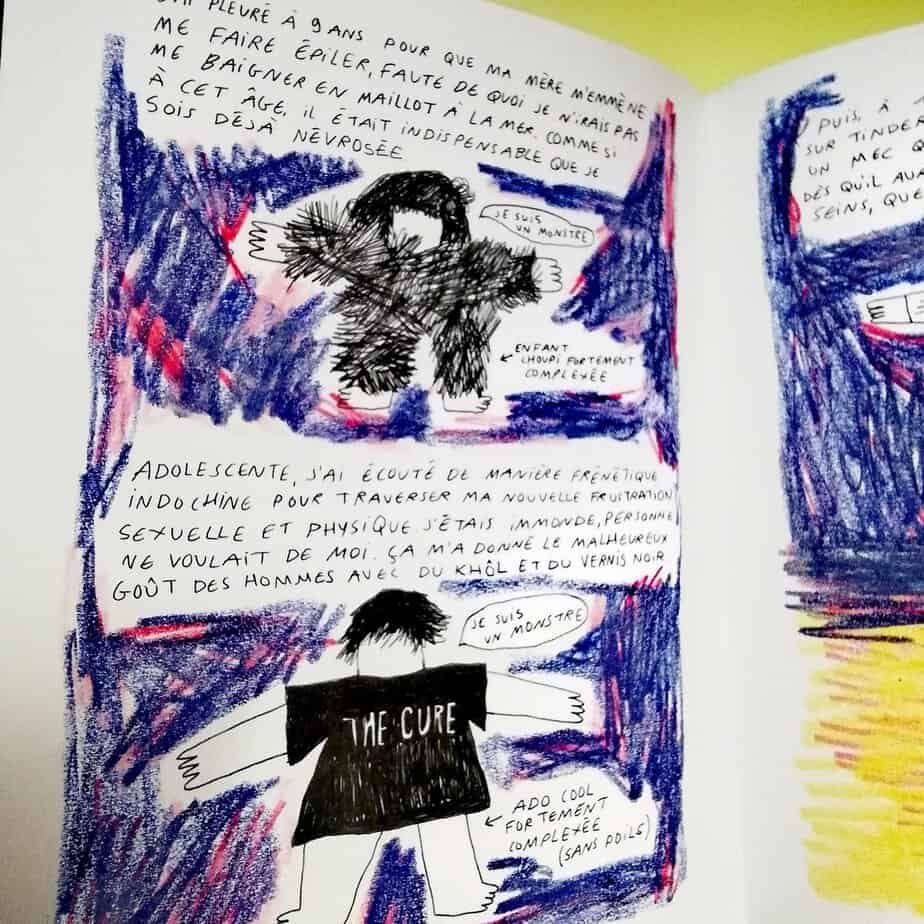 PLEURÉ À 9 ANS POUR QUE MA MÈRE M'EMMÈNE
ME FAIRE ÉPILER, FAUTE DE QUOI JE N'IRAIS PAS
ME BAIGNER EN MAILLOT À LA MER. COMME SI
À CET ÂGE, IL ÉTAIT INDISPENSABLE QUE JE
SOIS DÉJÀ NÉVROSÉE
JE SUIS
UN MONSTRE
ENFANT
CHOUPI FORTEMENT
COMPLEXÉE
ADOLESCENTE, J'AI ÉCOUTÉ DE MANIÈRE FRÉNÉTIQUE
INDOCHINE POUR TRAVERSER MA NOUVELLE FRUSTRATION
SEXUELLE ET PHYSIQUE J'ÉTAIS IMMONDE, PERSONNE
NE VOULAIT DE MOI. ÇA M'A DONNÉ LE MALHEUREUX
GOÛT DES HOMMES AVEC DU KHÔL ET DU VERNIS NOIR
JE SUIS
UN MONSTRE
THE CURE
ADO COOL
FORTEMENT
COMPLEXÉE
(SANS POILS)
PUIS, À
SUR TINDER
UN MEC
DÈS QU'IL
SEINS,